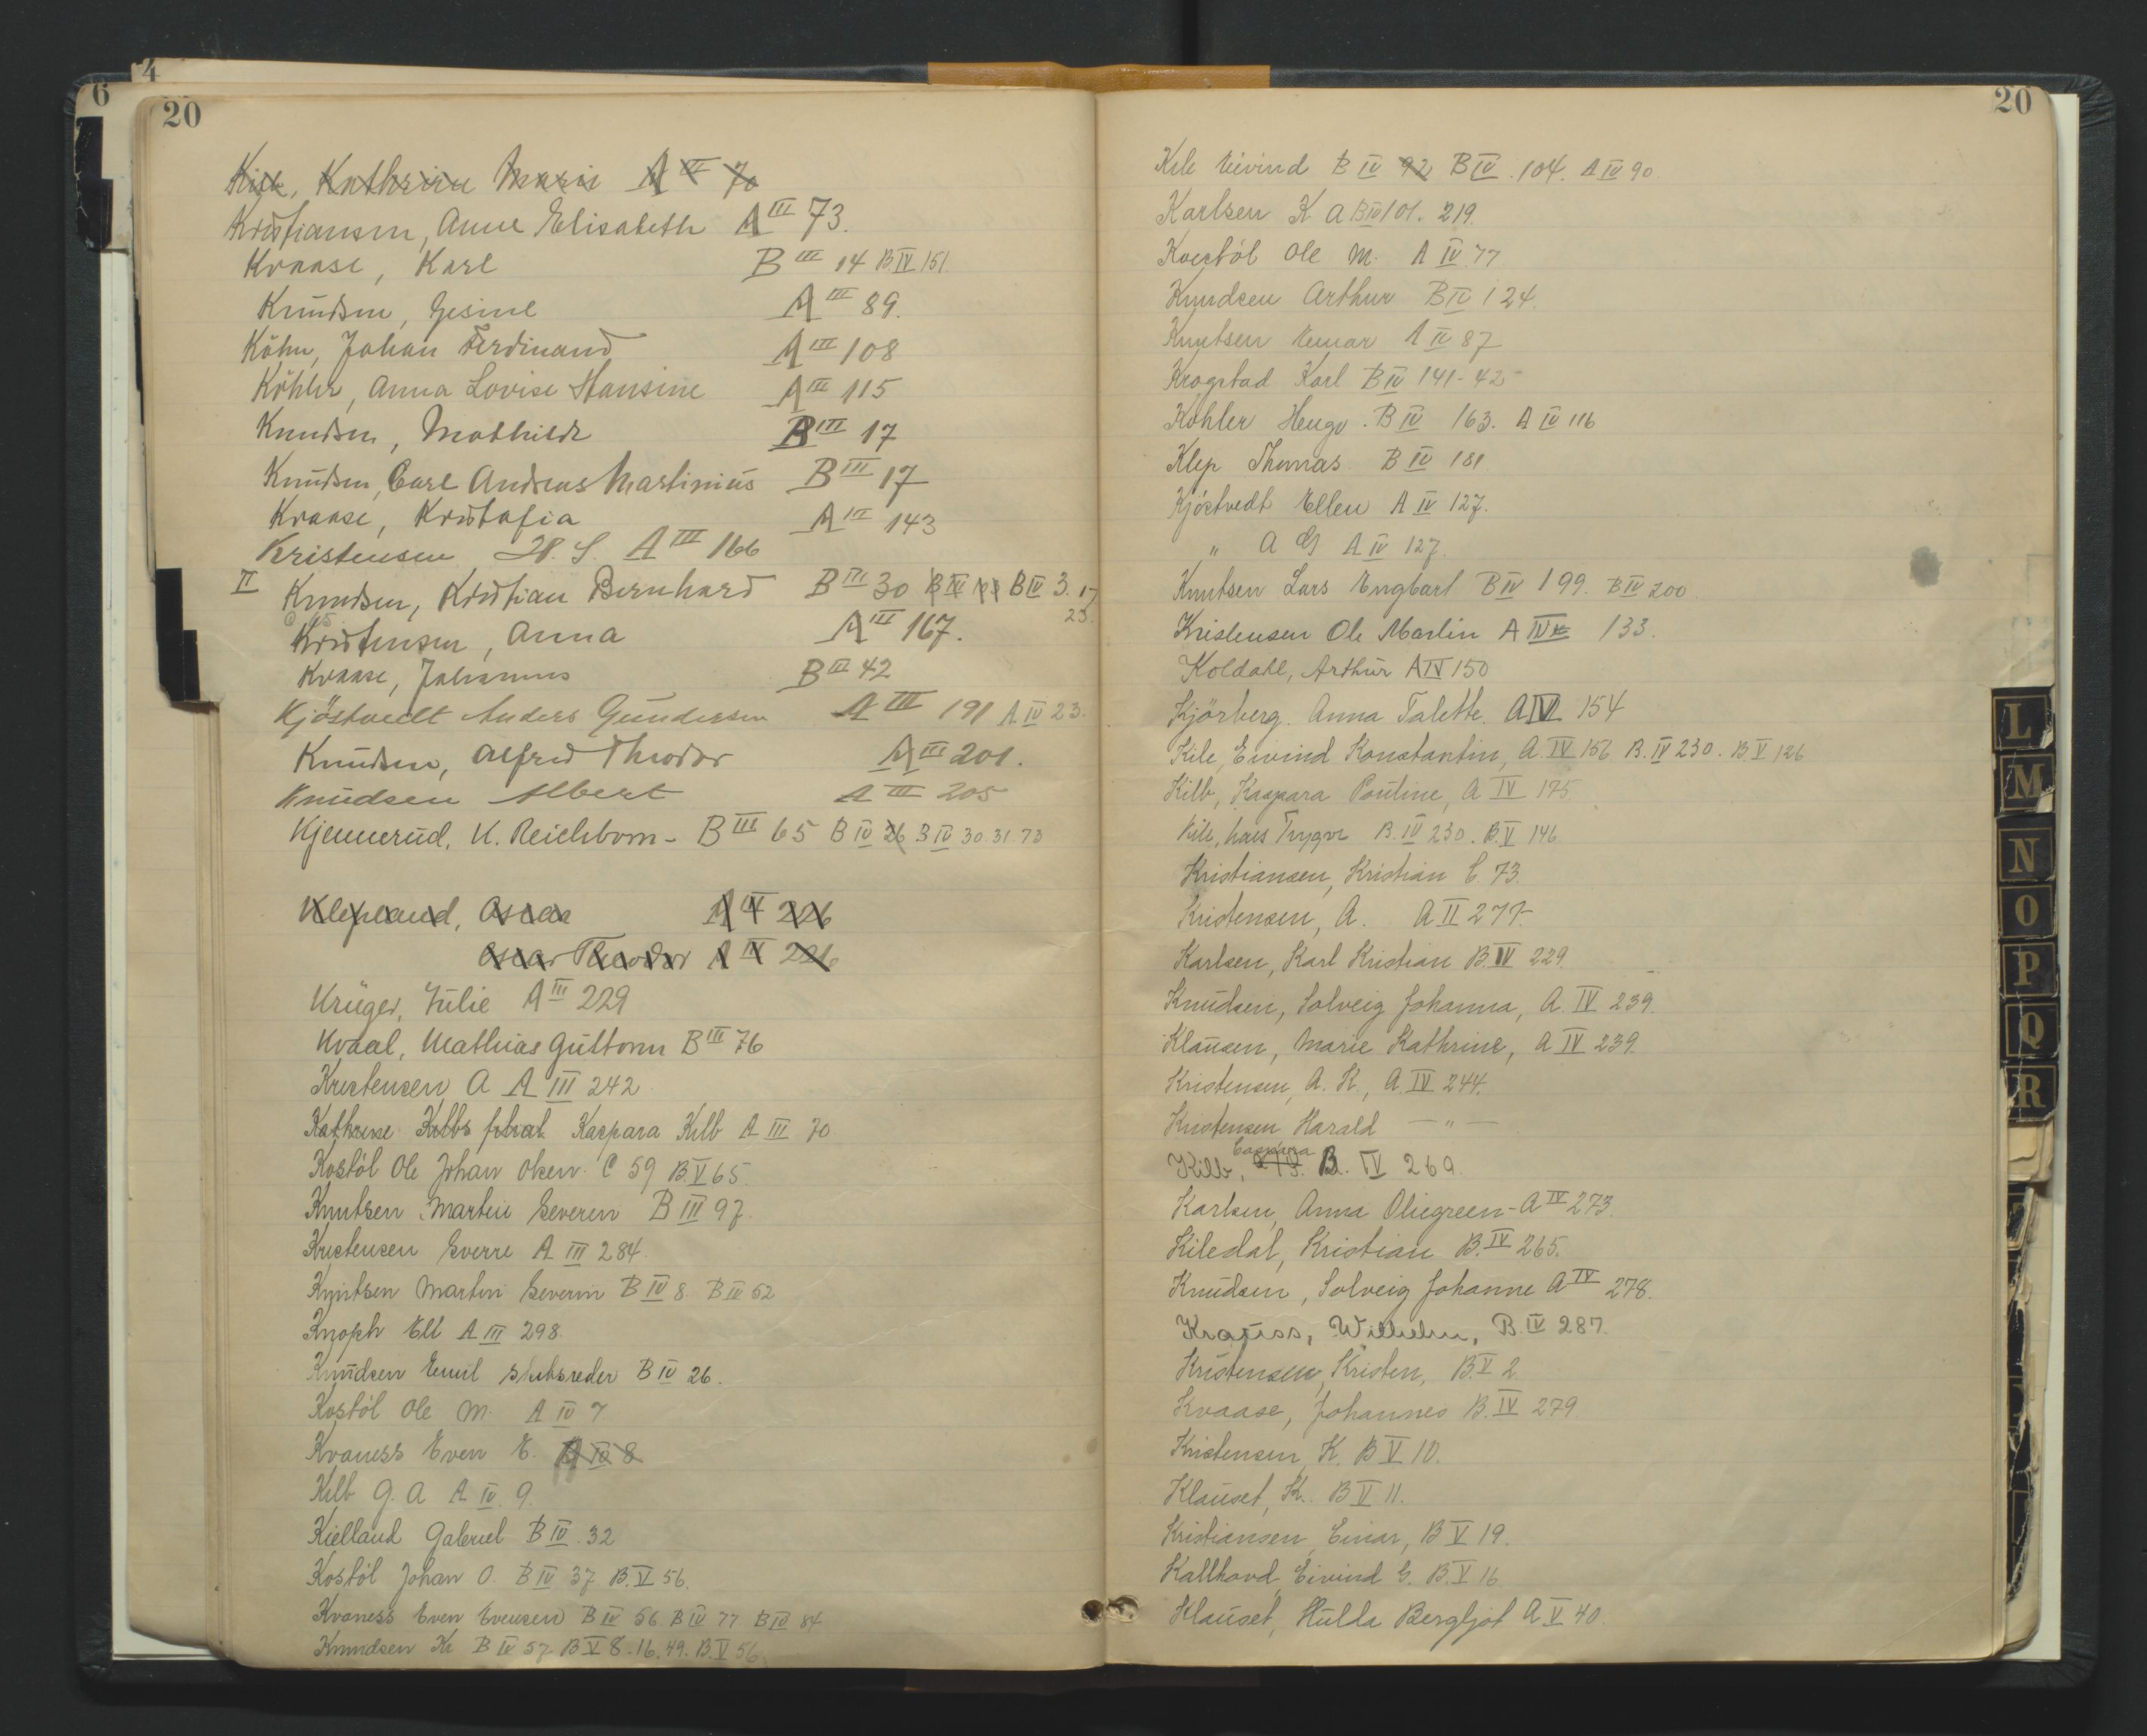 4
6
20
Kilb, Kathrine Marie A III 70
Kristiansen, Anne Elisabeth A III 73.
Kvaase, Karl B III 14 B IV 151.
Knudsen, Gesine A III 89.
Köhn, Johan Ferdinand A III 108
Köhler, Anna Lovise Hansine A III 115
Knudsen, Mathilde B III 17
Knudsen, Carl Andreas Martinius B III 17
Kvaase, Kristofia A III 143
Kristensen S. A III 166
II Knudsen, Kristian Bernhard B III 30 B IV B IV 3. 17
23.
Kristensen, Anna A III 167.
Kvaase, Johannes B III 42
Kjöstvedt Anders Gundersen A III 191 A IV 23.
Knudsen, Alfred Theodor A III 201.
Knudsen Albert A III 205
Kjennerud, K. Reichborn - B III 65 B IV 26 B IV 30.31.73
Klepland, Oscar A III 226
Oscar Theodor A III 226
Krüger, Julie A III 229
Kvaal, Mathias Guttorm B III 76
Kristensen A A III 242
Kathrine Kilbs Kaspara Kilb A III 70
Kostöl Ole Johan Olsen. C 59 B.V 65.
Knutsen Martin Severin B III 97.
Kristensen Sverre A III 284.
Knutsen Martin Severin B IV 8. B IV 52
Knoph Ell A III 298.
Knudsen Emil skibsreder B IV 26.
Kostöl Ole M. A IV 7
Kvaness Even E. A IV 8
Kilb G. A A IV. 9.
Kielland Gabriel B IV. 32
Kostöl Johan O. B IV 37 B.V 56.
Kvaness Even Evensen B IV 56 B IV 77 B IV 84
Knudsen Kr B IV 57 B V 8.16.49. B.V 56.
20
Kile Eivind B IV 92 B IV. 104. A IV 90.
Karlsen K A B IV 101. 219.
Kvestöl Ole M. A IV. 77
Knudsen Arthur B IV 124.
Knutsen A IV 87
Krogstad Karl B IV 141-42
Kohler B IV 163. A IV 116
Klep Thomas B IV 181.
Kjöstvedt Ellen A IV 127.
" A G A IV 127.
Knutsen Lars Engbart B IV 199. B IV 200.
Kristensen Ole Martin A IV 133.
Koldahl, Arthur A IV 150
Kjörberg. Anna Talette. A IV 154
Kile, Eivind Konstantin, A. IV 156 B. IV 230. B.V 126
Kilb, Kaspara Pouline, A IV 175.
Kile, Trygve B. IV 230. B.V 146
Kristiansen, Kristian C. 73.
Kristensen, A. A II 277.
Karlsen, Karl Kristian B. IV 229.
Knudsen, Solveig Johanna, A. IV 239.
Klausen, Marie Kathrine, A IV 239.
Kristensen, A. K., A. IV 244.
Kristensen Harald — " —
Caspara
Kilb, B. IV 269.
Karlsen, Anna Oliegreen - A IV 273.
Kiledal, Kristian B. IV 265.
Knudsen, Solveig Johanne A IV 278.
Krauss, Wilhelm, B. IV 287.
Kristensen, Kristen, B.V 2
Kvaase, Johannes B. IV 279
Kristensen, K. B V 10.
Klauset, K. B V 11.
Kristiansen, Einar, B V 19.
Kallhovd Eivind G. B.V 16.
Klauset, Hulda Bergljot A V 40.
L
M
N
O
P
Q
R